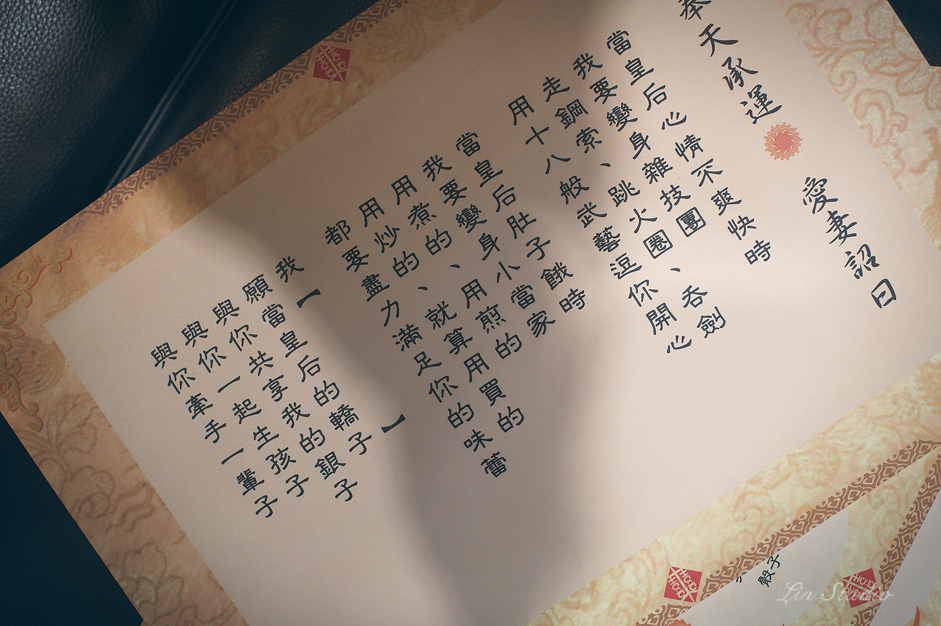 奉天承運 愛妻詔曰
當皇后心情不爽快時
我要變身雜技團
走鋼索、跳火圈、吞劍
用十八般武藝逗你開心
當皇后肚子餓時
我要變身小當家
用煮的、用煎的
用炒的、就算用買的
都要盡力滿足你的味蕾
我【 】
願當皇后的轎子
與你共享我的銀子
與你一起生孩子
與你牽手一輩子
骰子
Lin Studio